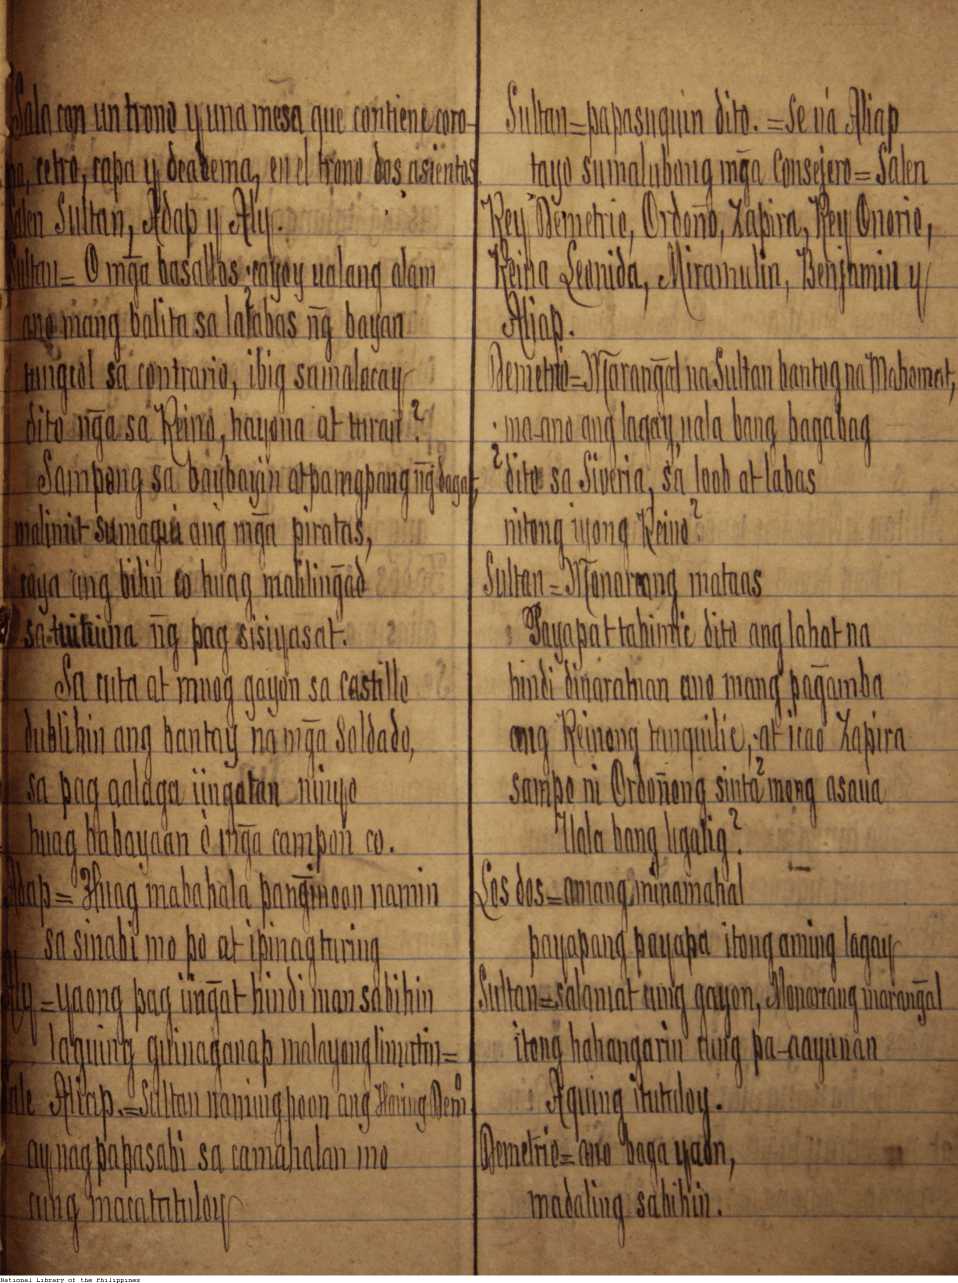 Sala con un trono y una mesa que contiene coro-
na, cetro, capa y deadema, en el trono dos asientos
Salen Sultan, Adap y Aly.
Sultan= O mg̃a basallos cayoy ualang alam
ano mang balita sa labas ñg bayan
tungcol sa contrario, ibig sumalacay
dito ñga sa Reino, bayona at turan?
Sampong sa baybayin at pampang ñg dagat,
malimit sumagui ang mg̃a piratas,
caya ang bilin co huag malilinḡad
sa ñg pag sisiyasat.
Sa cuta at muog gayon sa castillo
dublihin ang bantay na mg̃a Soldado,
sa pag aalaga iingatan ninyo
huag babayaan ò mg̃a campon co.
Adap= Huag mabahala panḡinoon namin
sa sinabi mo po at ipinagturing
Aly =yaong pag iinḡat hindi man sabihin
laguing guinaganap malayong limutin=
Sale Aliap.=Sultan naming poon ang Haring Demº
ay nagpapasabi sa camahalan mo
cung macatutuloy
Sultan=papasuquin dito. =Se vá Aliap
tayo sumalubong mg̃a Consejero= Salen
Rey Demetrio, Ordoño, Zapira, Rey Onorio,
Reina Leonida, Miramulin, Benjhmin y
Aliap.
Demetrio=Marangal na Sultan bantog na Mahomat,
ma-ano ang lagay, uala bang bagabag
dito sa Siveria, sa loob at labas
nitong iyong Reino?
Sultan=Monarcang mataas
Payapa't tahimic dito ang lahat na
hindi dinaratnan ano mang pagamba
ang Reinong tanquilic, at icao Zapira
sampo ni Ordoñong sinta mong asaua
Uala bang ligalig?
Los dos=amang minamahal
payapang payapa itong aming lagay
Sultan=salamat cung gayon, Monarcang maranḡal
itong hahangarin cung pa-aayunan
Aquing itutuloy.
Demetrio=ano baga yaon,
madaling sabihin.
National Library of the Philippines